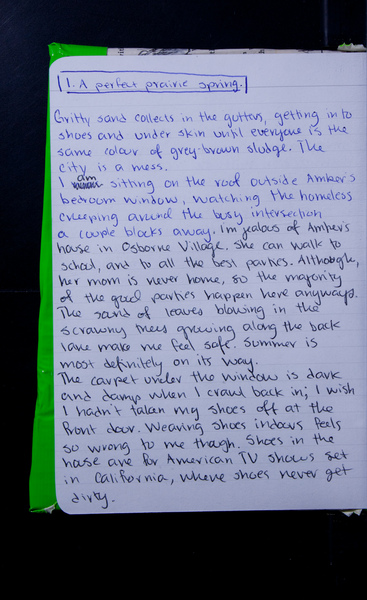 1. A perfect prairie spring.
Gritty sand collects in the gutters, getting in to
shoes and under skin until everyone is the
same colour of grey-brown sludge. The
city is a mess.
I am sitting on the roof outside Amber's
bedroom window, watching the homeless
creeping around the busy intersection
a couple blocks away. I'm jealous of Amber's
house in Osborne Village. She can walk to
school, and to all the best parties. Although,
her mom is never home, so the majority
of the good parties happen here anyways.
The sound of leaves blowing in the
scrawny trees growing along the back
lane make me feel safe. Summer is
most definitely on its way.
The carpet under the window is dark
and damp when I crawl back in; I wish
I hadn't taken my shoes off at the
front door. Wearing shoes indoors feels
so wrong to me though. Shoes in the
house are for American TV shows set
in California, where shoes never get
dirty.